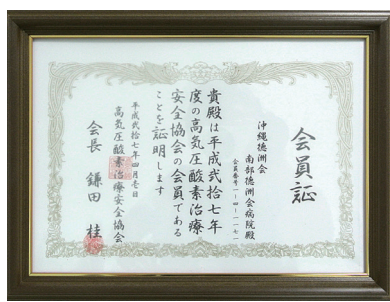 会員証
沖縄徳洲会
南部徳洲会病院殿
会員番号一ー四ー一一七
貴殿は平成弐拾七年
度の高気圧酸素治療
安全協会の会員である
ことを証明します
平成弐拾七年四月壱日
高気圧酸素治療安全協会
会長 鎌田 桂